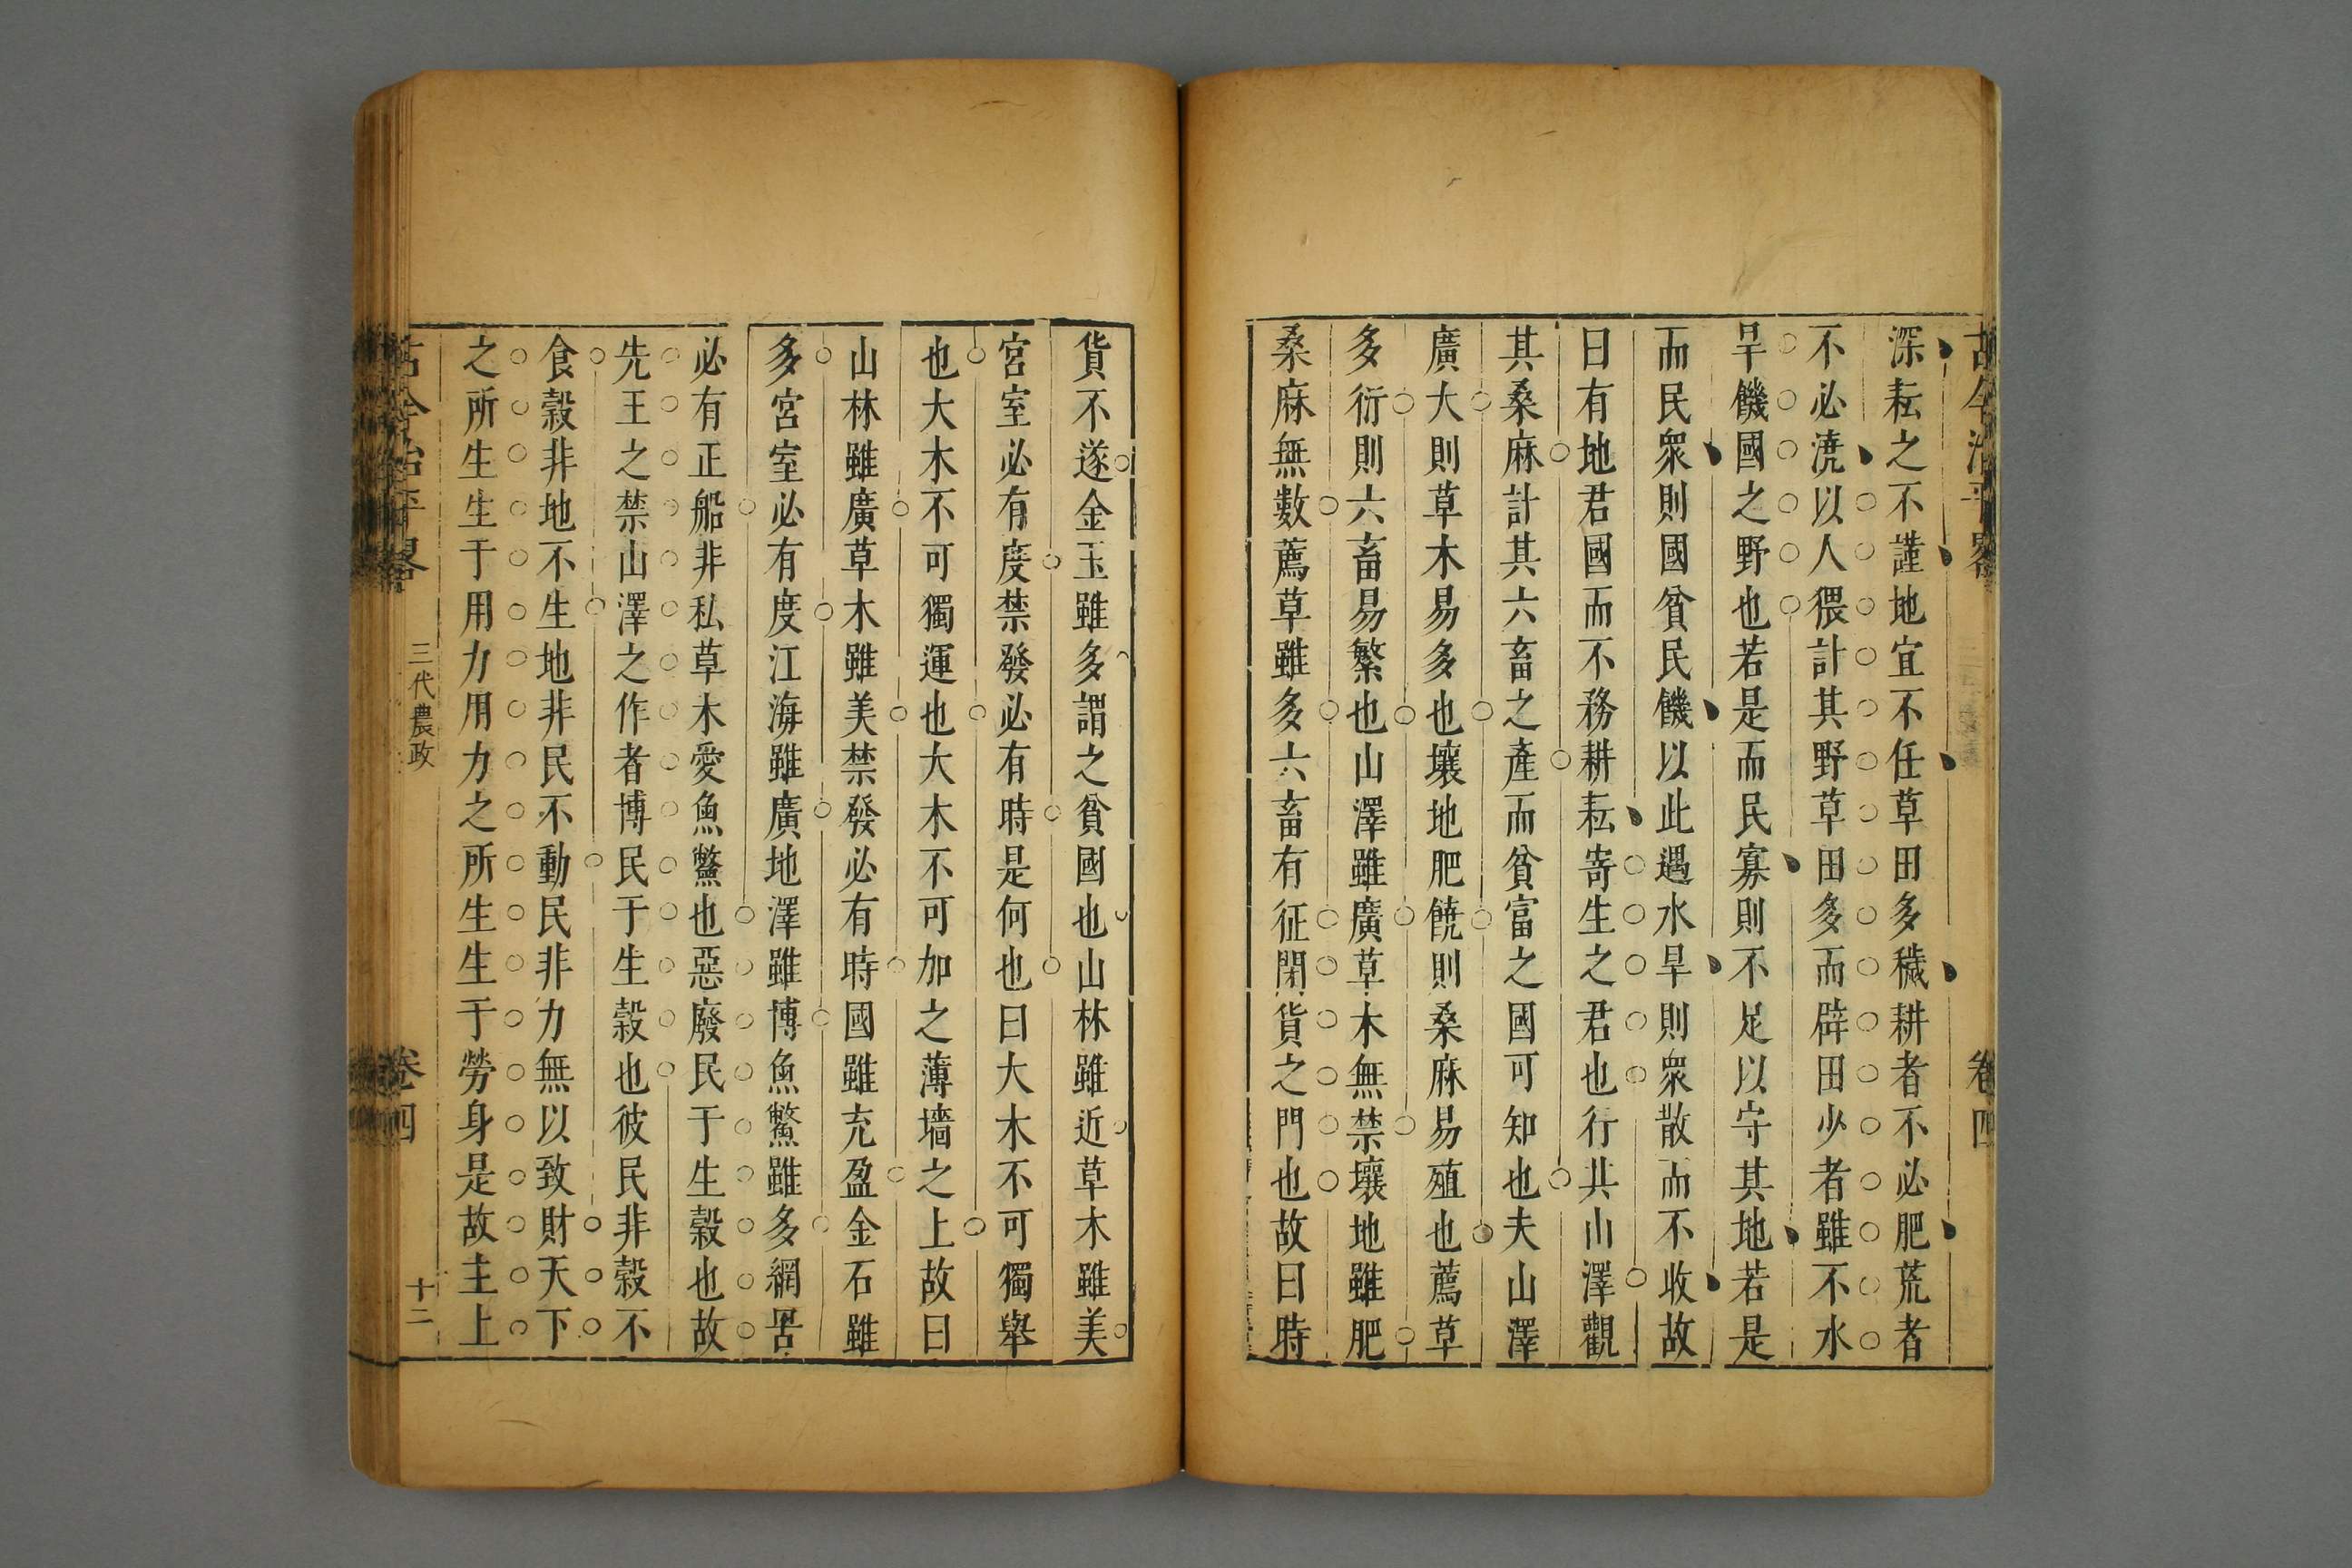 古今治平畧
卷四
深耘之不謹地宜不任草田多穢耕者不必肥荒者
不必澆以人猥計其野草田多而辟田少者雖不水
旱饑國之野也若是而民寡則不足以守其地若是
而民衆則國貧民饑以此遇水旱則衆散而不收故
曰有地君國而不務耕耘寄生之君也行其山澤觀
其桑麻計其六畜之產而貧富之國可知也夫山澤
廣大則草木易多也壤地肥饒則桑麻易殖也薦草
多衍則六畜易繁也山澤雖廣草木無禁壤地雖肥
桑麻無數薦草雖多六畜有征閉貨之門也故曰時
貨不遂金玉雖多謂之貧國也山林雖近草木雖美
宮室必有度禁發必有時是何也曰大木不可獨舉
也大木不可獨運也大木不可加之薄墻之上故曰
山林雖廣草木雖美禁發必有時國雖充盈金石雖
多宮室必有度江海雖廣地澤雖博魚鱉雖多網罟
必有正船非私草木愛魚鱉也惡廢民于生穀也故
先王之禁山澤之作者博民于生穀也彼民非穀不
食穀非地不生地非民不動民非力無以致財天下
之所生生于用力用力之所生生于勞身是故主上
古今治平畧
三代農政
卷四
十二